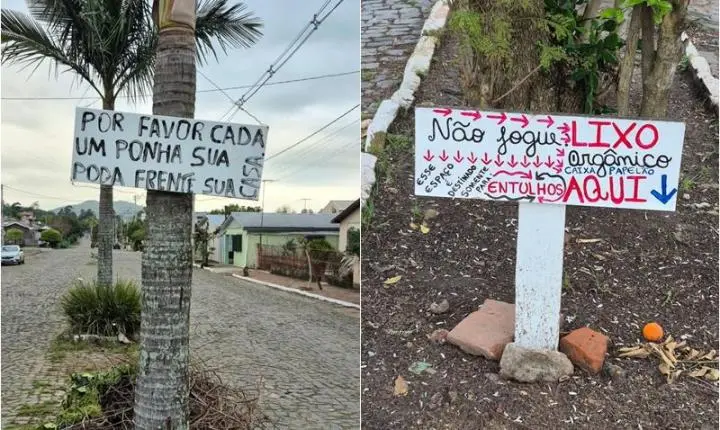 POR FAVOR CADA
UM PONHA SUA
PODA FRENTE SUA CASA
Não jogue LIXO
orgânico
CAIXA PAPELÃO
AQUI
ESSE
ESPAÇO
DESTINADO
SOMENTE
PARA
ENTULHOS